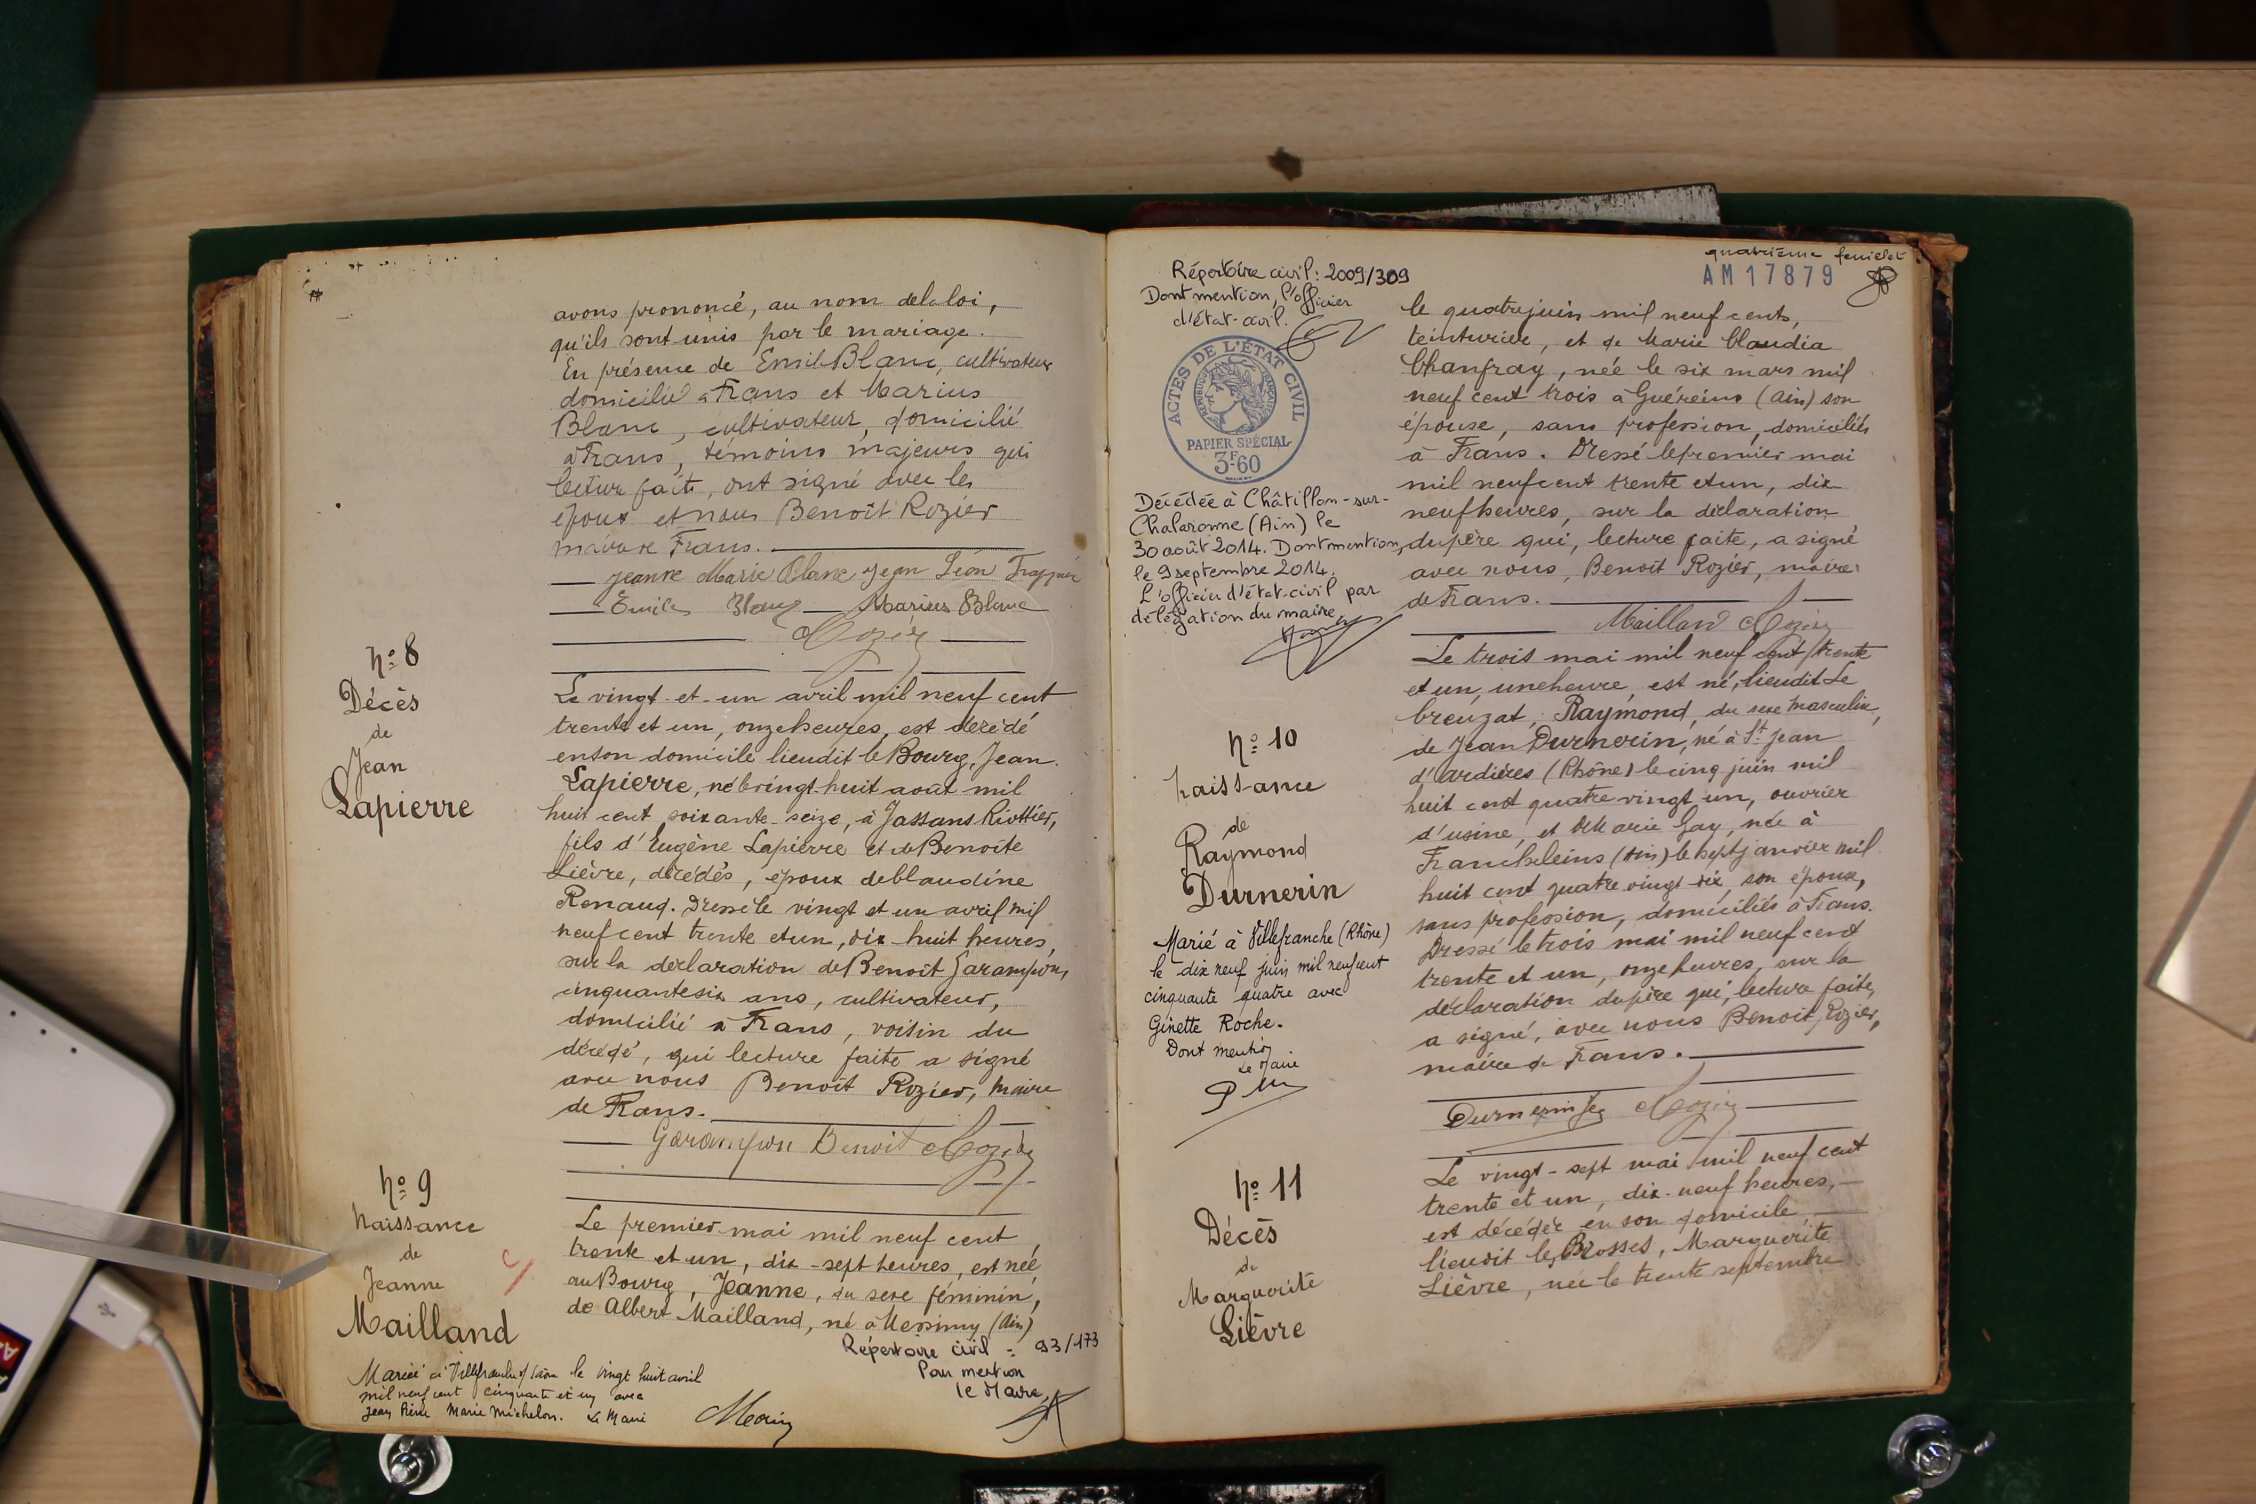 avons prononcé, au nom de la loi,
qu'ils sont unis par le mariage.
En présence de Emile Blanc, cultivateur
domicilié à Frans et Marius
Blanc, cultivateur, domicilié
à Frans, témoins majeurs qui
lecture faite, ont signé avec les
époux et nous Benoît Rozier
maire de Frans.
Jeanne Marie Blanc Jean Léon
Emile Blanc Marius Blanc
Rozier
N° 8
Décès
de
Jean
Lapierre
Le vingt-et-un avril mil neuf cent
trente et un, onze heures, est décédé
en son domicile lieudit le Bourg, Jean
Lapierre, né le vingt-huit août mil
huit cent soixante-seize, à Jassans Riottier,
fils d'Eugène Lapierre et de Benoîte
Lièvre, décédés, époux de Claudine
Renaud. Dressé le vingt et un avril mil
neuf cent trente et un, dix-huit heures,
sur la déclaration de Benoît Garampon,
cinquante six ans, cultivateur,
domicilié à Frans, voisin du
décédé, qui lecture faite a signé
avec nous Benoît Rozier, maire
de Frans.
Garampon Benoit Rozier
N° 9
Naissance
de
Jeanne
Mailland
Le premier mai mil neuf cent
trente et un, dix-sept heures, est née
au Bourg, Jeanne, du sexe féminin,
de Albert Mailland, né à Messimy (Ain)
Répertoire civil = 93/173
Pour mention
le Maire
Mariée à Villefranche s/ Saône le vingt huit avril
mil neuf cent cinquante et un avec
Jean Pierre Marie Michelon. Le Maire
quatrième feuillet
AM17879
Répertoire civil : 2009/309
Dont mention, l'officier
d'état-civil.
ACTES DE L'ÉTAT CIVIL
RÉPUBLIQUE FRANÇAISE
PAPIER SPÉCIAL
3F60
Décédée à Châtillon-sur-
Chalaronne (Ain) le
30 août 2014. Dont mention,
le 9 septembre 2014.
L'officier d'état-civil par
délégation du maire,
le quatre juin mil neuf cents,
teinturier, et de Marie Claudia
Chanfray, née le six mars mil
neuf cent trois à Guéreins (Ain) son
épouse, sans profession, domiciliés
à Frans. Dressé le premier mai
mil neuf cent trente et un, dix
neuf heures, sur la déclaration
du père qui, lecture faite, a signé
avec nous, Benoît Rozier, maire
de Frans.
Mailland Rozier
N° 10
Naissance
de
Raymond
Durnerin
Le trois mai mil neuf cent trente
et un, une heure, est né, lieudit Le
Creuzat, Raymond, du sexe masculin,
de Jean Durnerin, né à St Jean
d'Ardières (Rhône) le cinq juin mil
huit cent quatre vingt un, ouvrier
d'usine, et de Marie Gay, née à
Francheleins (Ain) le sept janvier mil
huit cent quatre vingt dix, son épouse,
sans profession, domiciliés à Frans.
Dressé le trois mai mil neuf cent
trente et un, onze heures, sur la
déclaration du père qui, lecture faite,
a signé, avec nous Benoît Rozier,
maire de Frans.
Marié à Villefranche (Rhône)
le dix neuf juin mil neuf cent
cinquante quatre avec
Ginette Roche.
Dont mention
Le Maire
Durnerin Jean Rozier
N° 11
Décès
de
Marguerite
Lièvre
Le vingt-sept mai mil neuf cent
trente et un, dix-neuf heures,
est décédée en son domicile
lieudit les Brosses, Marguerite
Lièvre, née le trente septembre